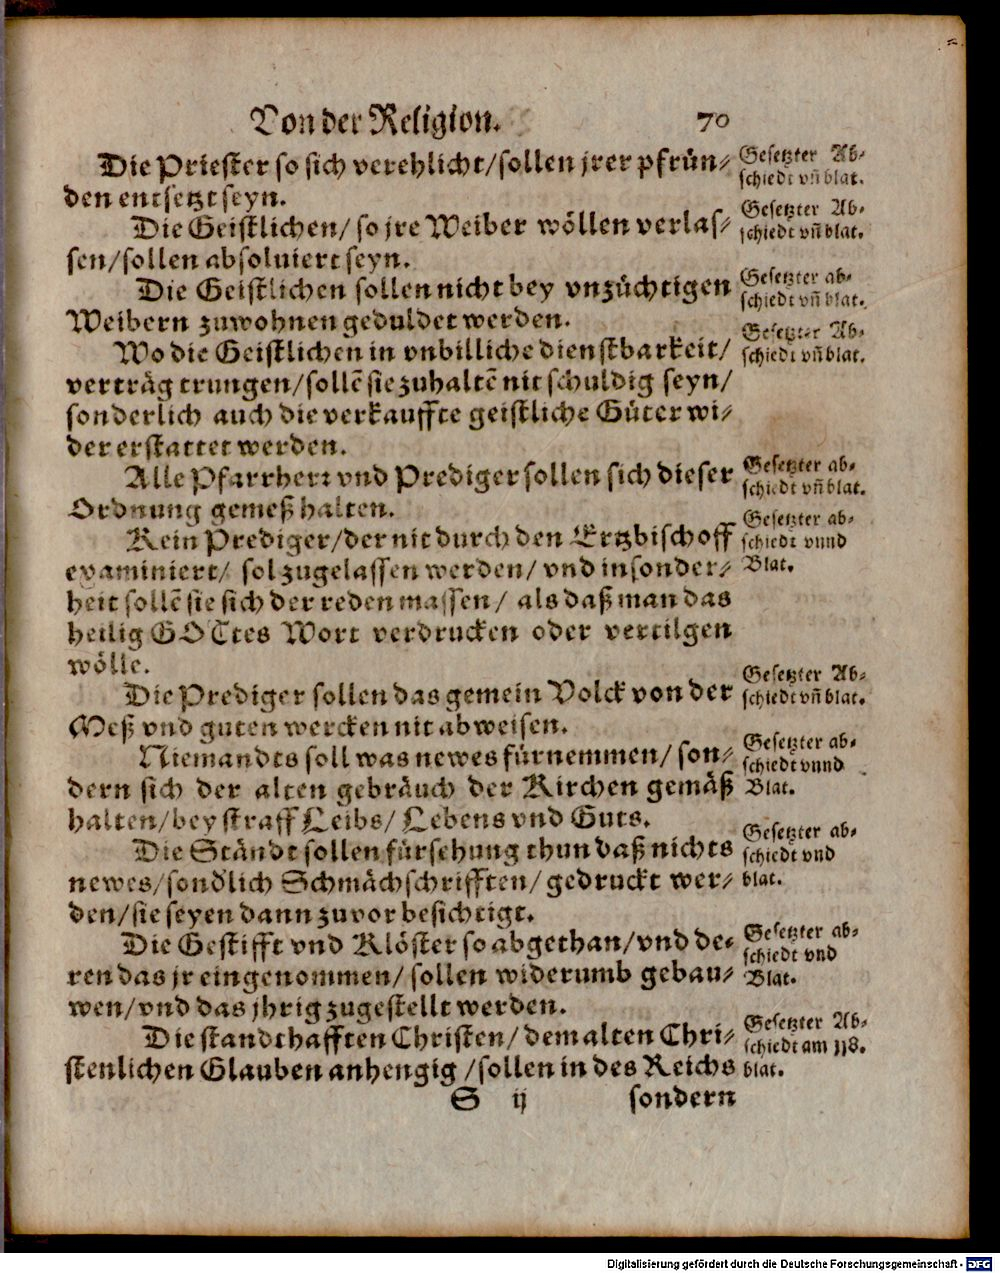 Von der Religion. 70
Die Priester so sich verehlicht/sollen jrer pfrün⸗
den entsetzt seyn.
Gesetzter Ab⸗
schiedt vñ blat.
Die Geistlichen/ so jre Weiber wöllen verlas⸗
sen/sollen absoluiert seyn.
Gesetzter Ab⸗
schiedt vñ blat.
Die Geistlichen sollen nicht bey vnzüchtigen
Weibern zuwohnen geduldet werden.
Gesetzter ab⸗
schiedt vñ blat.
Wo die Geistlichen in vnbilliche dienstbarkeit/
verträg trungen/sollẽ sie zuhaltẽ nit schuldig seyn/
sonderlich auch die verkauffte geistliche Güter wi⸗
der erstattet werden.
Gesetzter Ab⸗
schiedt vñ blat.
Alle Pfarrherꝛ vnd Prediger sollen sich dieser
Ordnung gemeß halten.
Gesetzter ab⸗
schiedt vñ blat.
Kein Prediger/der nit durch den Ertzbischoff
examiniert/ sol zugelassen werden/ vnd insonder⸗
heit sollẽ sie sich der reden massen/ als daß man das
heilig GOTtes Wort verdrucken oder vertilgen
wölle.
Gesetzter ab⸗
schiedt vnnd
Blat.
Die Prediger sollen das gemein Volck von der
Meß vnd guten wercken nit abweisen.
Gesetzter Ab⸗
schiedt vñ blat.
Niemandts soll was newes fürnemmen/ son⸗
dern sich der alten gebräuch der Kirchen gemäß
halten/bey straff Leibs/ Lebens vnd Guts.
Gesetzter ab⸗
schiedt vnnd
Blat.
Die Ständt sollen fürsehung thun daß nichts
newes/sondlich Schmächschrifften/ gedruckt wer⸗
den/sie seyen dann zuvor besichtigt.
Gesetzter ab⸗
schiedt vnd
blat.
Die Gestifft vnd Klöster so abgethan/vnd de⸗
ren das jr eingenommen/ sollen widerumb gebau⸗
wen/vnd das jhrig zugestellt werden.
Gesetzter ab⸗
schiedt vnd
Blat.
Die standthafften Christen/ dem alten Chri⸗
stenlichen Glauben anhengig /sollen in des Reichs
Gesetzter Ab⸗
schiedt am 118.
blat.
S ij sondern
Digitalisierung gefördert durch die Deutsche Forschungsgemeinschaft - DFG